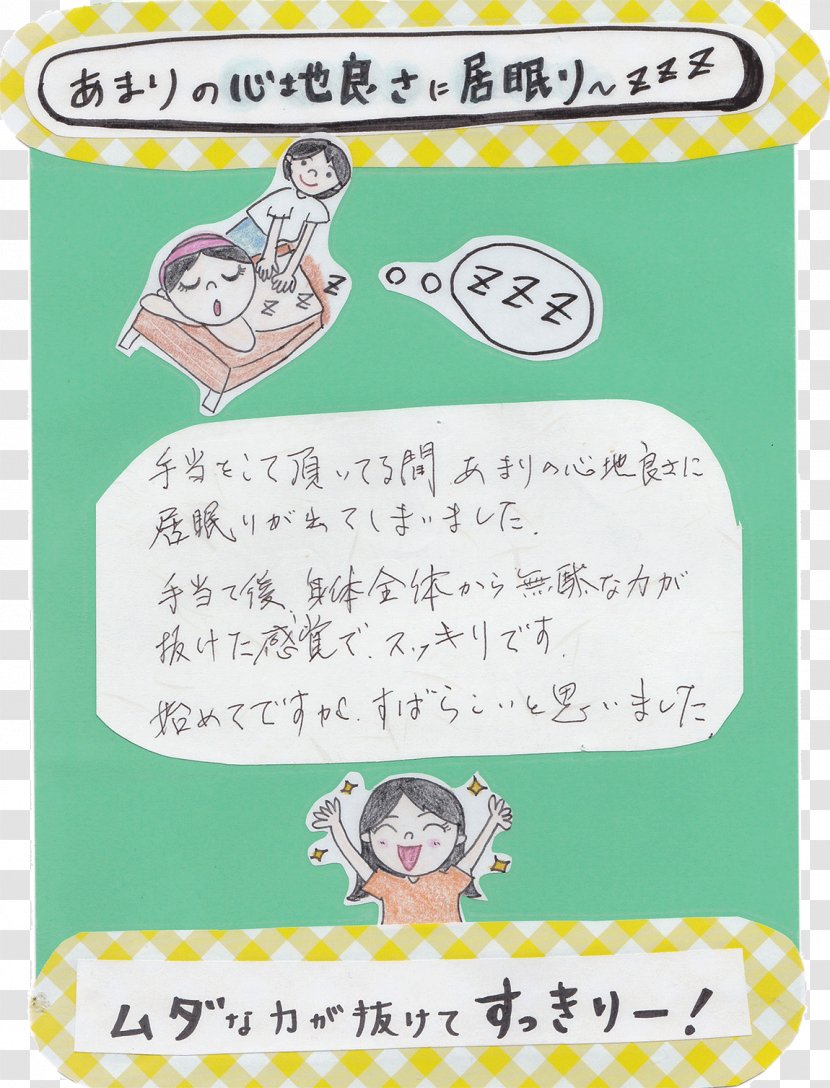 あまりの心地良さに居眠り〜zzz
z
z
z
zzz
手当をして頂いてる間 あまりの心地良さに
居眠りが出てしまいました。
手当て後、身体全体から無駄な力が
抜けた感覚で、スッキリです。
始めてですが、すばらしいと思いました
ムダな力が抜けてすっきりー!